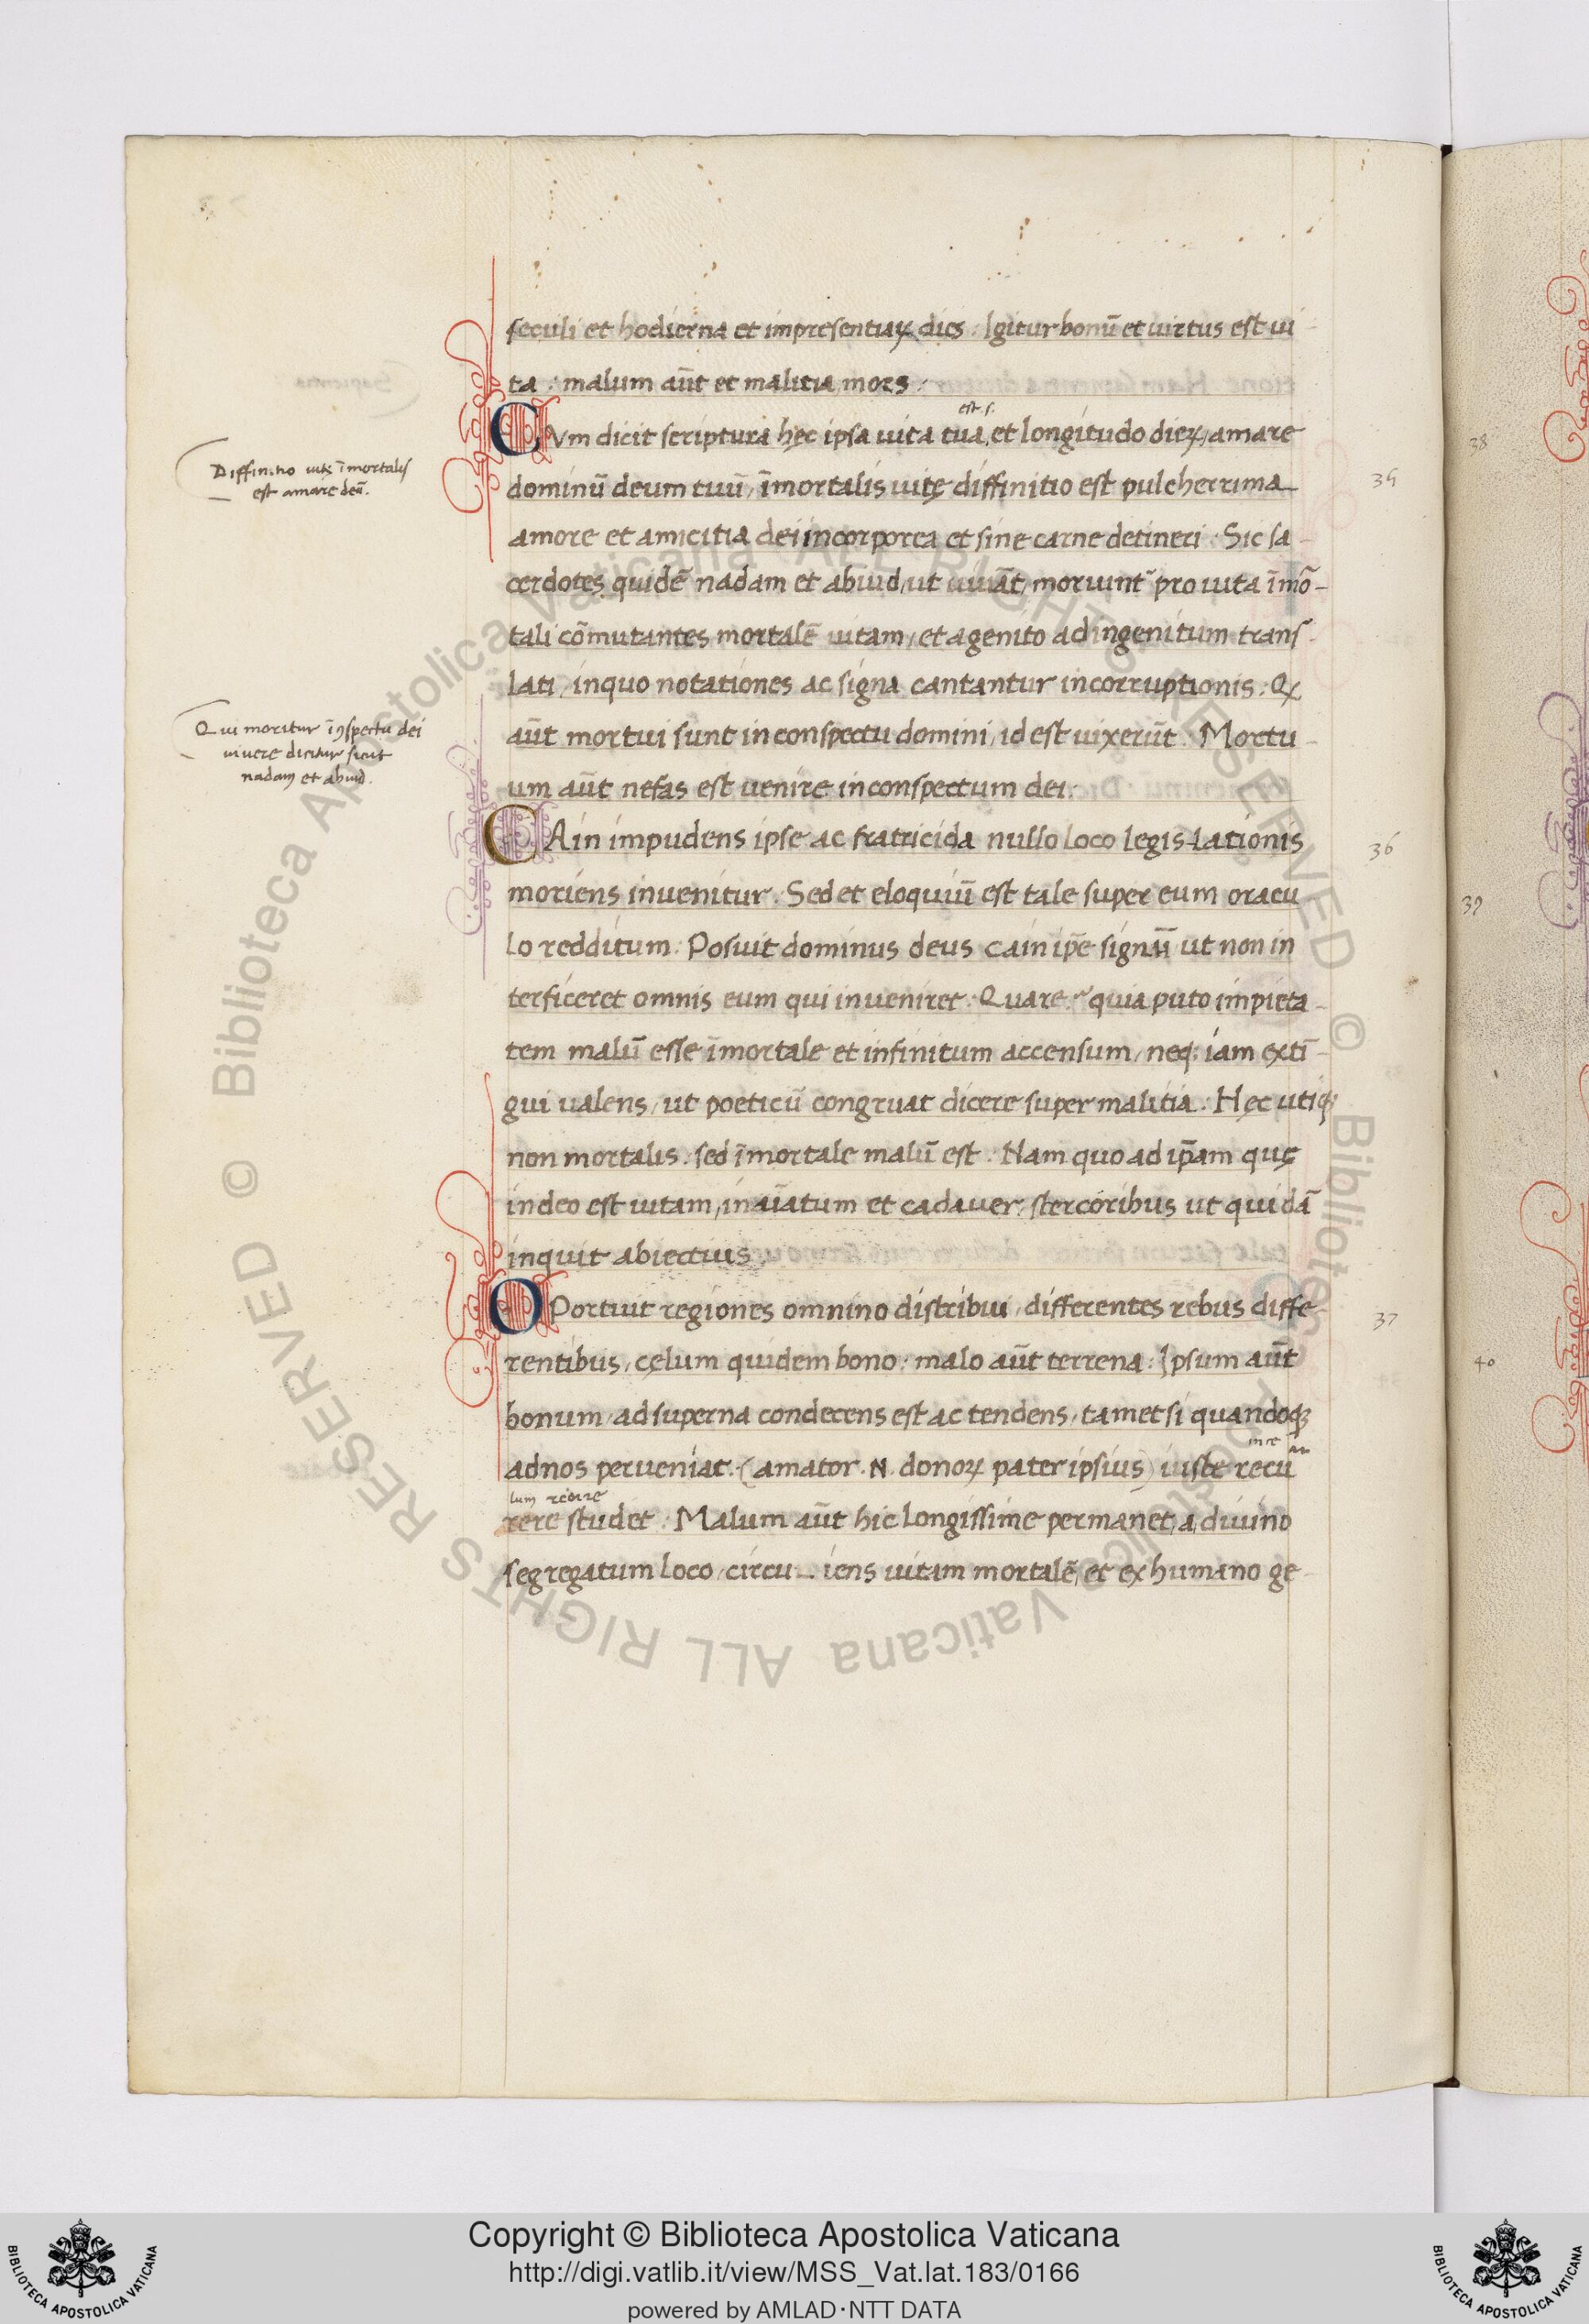 seculi et hodierna et impresentiaꝝ dies : Igitur bonū et uirtus est ui
ta : malum aūt et malitia mors :
est s.
CVm dicit scriptura hęc ipsa uita tua, et longitudo dieꝝ, amare
dominū deum tuū, īmortalis uitę diffinitio est pulcherrima
amore et amicitia dei incorporea et sine carne detineri : Sic sa
cerdotes quidē nadam et abiud, ut uiuāt, moriunt᷑ pro uita īmo᷑
tali cōmutantes mortalē uitam, et agenito ad ingenitum trans
lati, inquo notationes ac signa cantantur incorruptionis : Qꝝ
aūt mortui sunt in conspectu domini, id est uixerūt. Mortu
um aūt nefas est uenire in conspectum dei :
Diffinitio uitę īmortalis
est amare deū.
Qui moritur īꝯspectu dei
uiuere dicitur sicut
nadam et abiud.
CAin impudens ipse ac fratricida nullo loco legis-lationis
moriens inuenitur. Sed et eloquiū est tale super eum oracu
lo redditum : Posuit dominus deus cain ip̄e signū ut non in
terficeret omnis eum qui inveniret : Quare? quia puto impieta
tem malū esse īmortale et infinitum accensum, neqꝫ iam extī
gui ualens, ut poeticū congruat dicere super malitia : Hęc utiqꝫ
non mortalis. sed īmortale malū est : Nam quo ad ip̄am quę
in deo est uitam, inaīatum et cadauer, stercoribus ut quidā
inquit abiectius
OPortuit regiones omnino distribui, differentes rebus diffe
rentibus, cęlum quidem bono : malo aūt terrena : Ipsum aūt
bonum, ad superna condecens est ac tendens, tametsi quandoqꝫ
ad nos perueniat. (amator .N. donoꝝ pater ipsius) iuste recu
lum redire
rere studet : Malum aūt hic longissime permanet, a diuino
segregatum loco, circu-iens uitam mortalē, et ex humano ge
35
36
37
38
39
40
© Biblioteca Apostolica Vaticana ALL RIGHTS RESERVED © Biblioteca Apostolica Vaticana ALL RIGHTS RESERVED
Copyright © Biblioteca Apostolica Vaticana
http://digi.vatlib.it/view/MSS_Vat.lat.183/0166
powered by AMLAD·NTT DATA
BIBLIOTECA APOSTOLICA VATICANA
BIBLIOTECA APOSTOLICA VATICANA